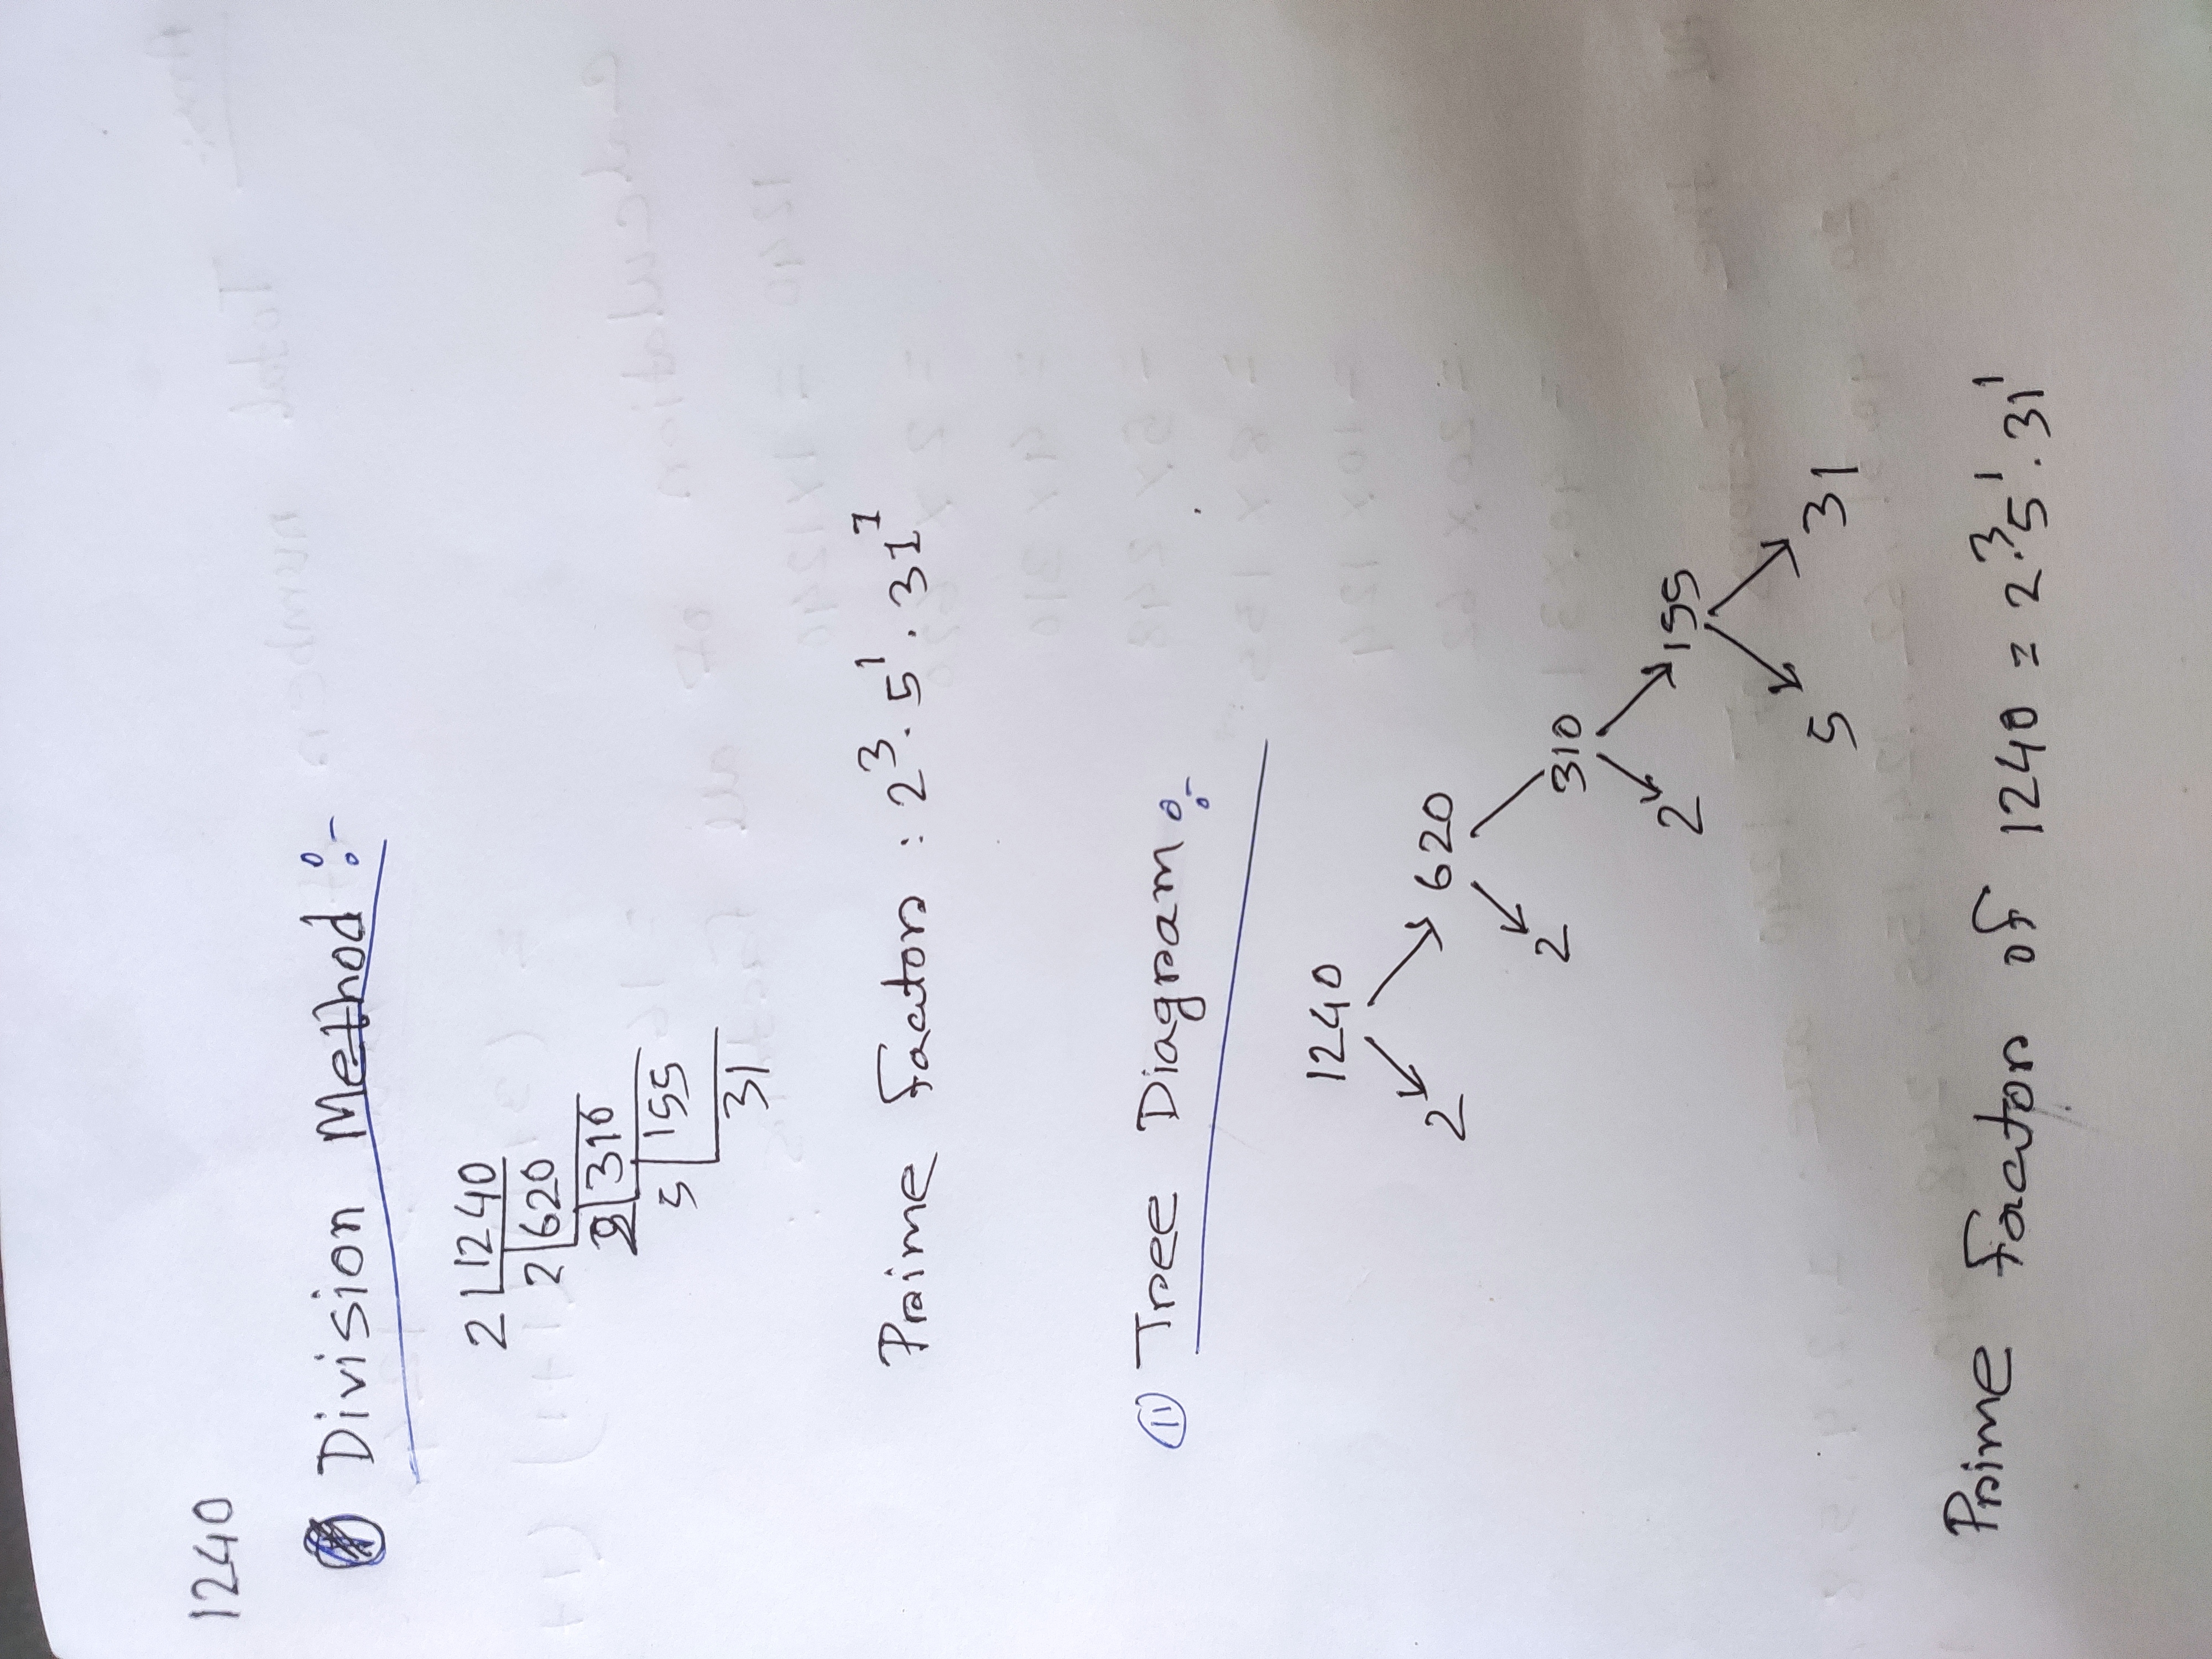 1240
Division Method :-
2 | 1240
2 | 620
2 | 310
5 | 155
31
Prime factors : 2³. 5¹. 31¹
(11) Tree Diagram :-
1240
2 620
2 310
2 155
5 31
Prime factors of 1240 = 2³. 5¹. 31¹